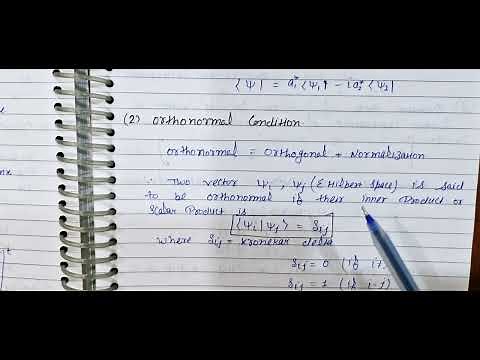 ⟨ψ| = a₁* ⟨ψ₁| - i a₂* ⟨ψ₂|
(2) Orthonormal Condition
Orthonormal = Orthogonal + Normalization
∴ Two vector ψi, ψj (∈ Hilbert Space) is said
to be orthonormal if their inner Product or
Scalar Product is
⟨ψi|ψj⟩ = δij
where δij = Kronekar delta
δij = 0 (if i
δij = 1 (if i=j)